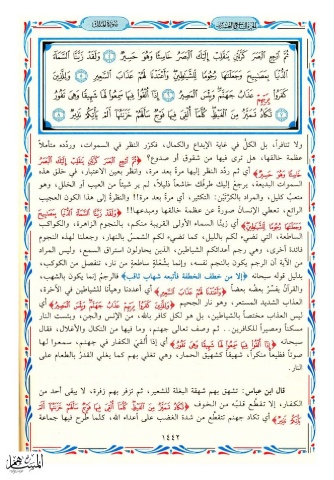 سورة الملك
ثُمَّ ارْجِعِ الْبَصَرَ كَرَّتَيْنِ يَنقَلِبْ إِلَيْكَ الْبَصَرُ خَاسِئًا وَهُوَ حَسِيرٌ ﴿٤﴾ وَلَقَدْ زَيَّنَّا السَّمَاءَ
الدُّنْيَا بِمَصَابِيحَ وَجَعَلْنَاهَا رُجُومًا لِّلشَّيَاطِينِ وَأَعْتَدْنَا لَهُمْ عَذَابَ السَّعِيرِ ﴿٥﴾ وَلِلَّذِينَ
كَفَرُوا بِرَبِّهِمْ عَذَابُ جَهَنَّمَ وَبِئْسَ الْمَصِيرُ ﴿٦﴾ إِذَا أُلْقُوا فِيهَا سَمِعُوا لَهَا شَهِيقًا وَهِيَ تَفُورُ
﴿٧﴾ تَكَادُ تَمَيَّزُ مِنَ الْغَيْظِ كُلَّمَا أُلْقِيَ فِيهَا فَوْجٌ سَأَلَهُمْ خَزَنَتُهَا أَلَمْ يَأْتِكُمْ نَذِيرٌ ﴿٨﴾
ولا تنافراً، بل الكلُّ في غاية الإبداع والكمال، فكرّر النظر في السموات، وردّده متأملاً
عظمة خالقها، هل ترى فيها من شقوق أو صدوع؟ ﴿ثُمَّ ارْجِعِ الْبَصَرَ كَرَّتَيْنِ يَنقَلِبْ إِلَيْكَ الْبَصَرُ
خَاسِئًا وَهُوَ حَسِيرٌ﴾ أي ثم ردِّد النظر إليها مرة بعد مرة، وانظر بعين الاعتبار، في خلق هذه
السموات البديعة، يرجعْ إليك طرفُك خاشعاً ذليلاً، لم ير شيئاً من العيب أو الخلل، وهو
متعبٌ كليل، والمراد بالكرّتين: التكثير، أي مرة بعد مرة!! والنظرة إلى هذا الكون العجيب
الرائع، تعطي الإنسان صورة عن عظمة خالقها ومبدعها!! ﴿وَلَقَدْ زَيَّنَّا السَّمَاءَ الدُّنْيَا بِمَصَابِيحَ
وَجَعَلْنَاهَا رُجُومًا لِّلشَّيَاطِينِ﴾ أي زينا السماء الأولى القريبة منكم، بالنجوم الزاهرة، والكواكب
الساطعة، التي تضيء لكم بالليل، كما تضيء لكم الشمسُ بالنهار، وجعلنا لهذه النجوم
فائدة أخرى، وهي رجم أعدائكم الشياطين، الذين يحاولون استراق السمع، وليس المراد
من الآية أن الرجم يكون بالنجم نفسه، وإنما بشُعْلةٍ ساطعةٍ من نار، تنفصل من الكوكب،
بدليل قوله سبحانه ﴿إلا من خطف الخطفة فأتبعه شهاب ثاقب﴾ فالرجمُ إنما يكون بالشهب،
والقرآنُ يفسّر بعضُه بعضاً ﴿وَأَعْتَدْنَا لَهُمْ عَذَابَ السَّعِيرِ﴾ أي أعددنا وهيأنا للشياطين في الآخرة،
العذاب الشديد المستعر، وهو نار الجحيم ﴿وَلِلَّذِينَ كَفَرُوا بِرَبِّهِمْ عَذَابُ جَهَنَّمَ وَبِئْسَ الْمَصِيرُ﴾ أي
ليس العذاب مختصاً بالشياطين، بل هو لكل كافر بالله، من الإنس والجن، وبئست النار
مسكناً ومصيراً للكافرين.. ثم وصف تعالى جهنم، وما فيها من النكال والأغلال، فقال
سبحانه ﴿إِذَا أُلْقُوا فِيهَا سَمِعُوا لَهَا شَهِيقًا وَهِيَ تَفُورُ﴾ أي إذا أُلقيَ الكفار في جهنم، سمعوا لها
صوتاً فظيعاً منكراً، شهيقاً كشهيق الحمار، وهي تغلي بهم كما يغلي القدرُ بالطعام على
النار.
قال ابن عباس: تشهق بهم شهقة البغلة للشعير، ثم تزفر بهم زفرة، لا يبقى أحد من
الكفار، إلا تقطّع قلبُه من الخوف ﴿تَكَادُ تَمَيَّزُ مِنَ الْغَيْظِ كُلَّمَا أُلْقِيَ فِيهَا فَوْجٌ سَأَلَهُمْ خَزَنَتُهَا أَلَمْ
يَأْتِكُمْ نَذِيرٌ﴾ أي تكاد جهنم تتقطّع من شدة الغضب على أعداء الله، كلما طُرح فيها جماعة
١٤٤٢